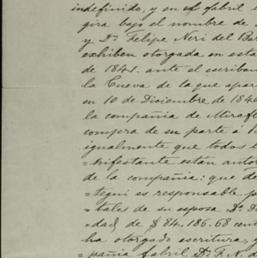 indefinido, y en el fabril e
gira bajo el nombre de
y Dn. Felipe Neri del Bar
exhiben otorgada en esta
de 1841. ante el escriban
la Cueva de la que apare
en 10 de Diciembre de 184
la compañia de Miraflo
compra de su parte á
igualmente que todos
nifestante están autor
de la compañia: que de
=tegui es responsable p
=tales de su esposa Da. D
=dad, de $ 84.186.68 cent
ha otorgado escritura, y
=pañia fabril Dn. F. N. d